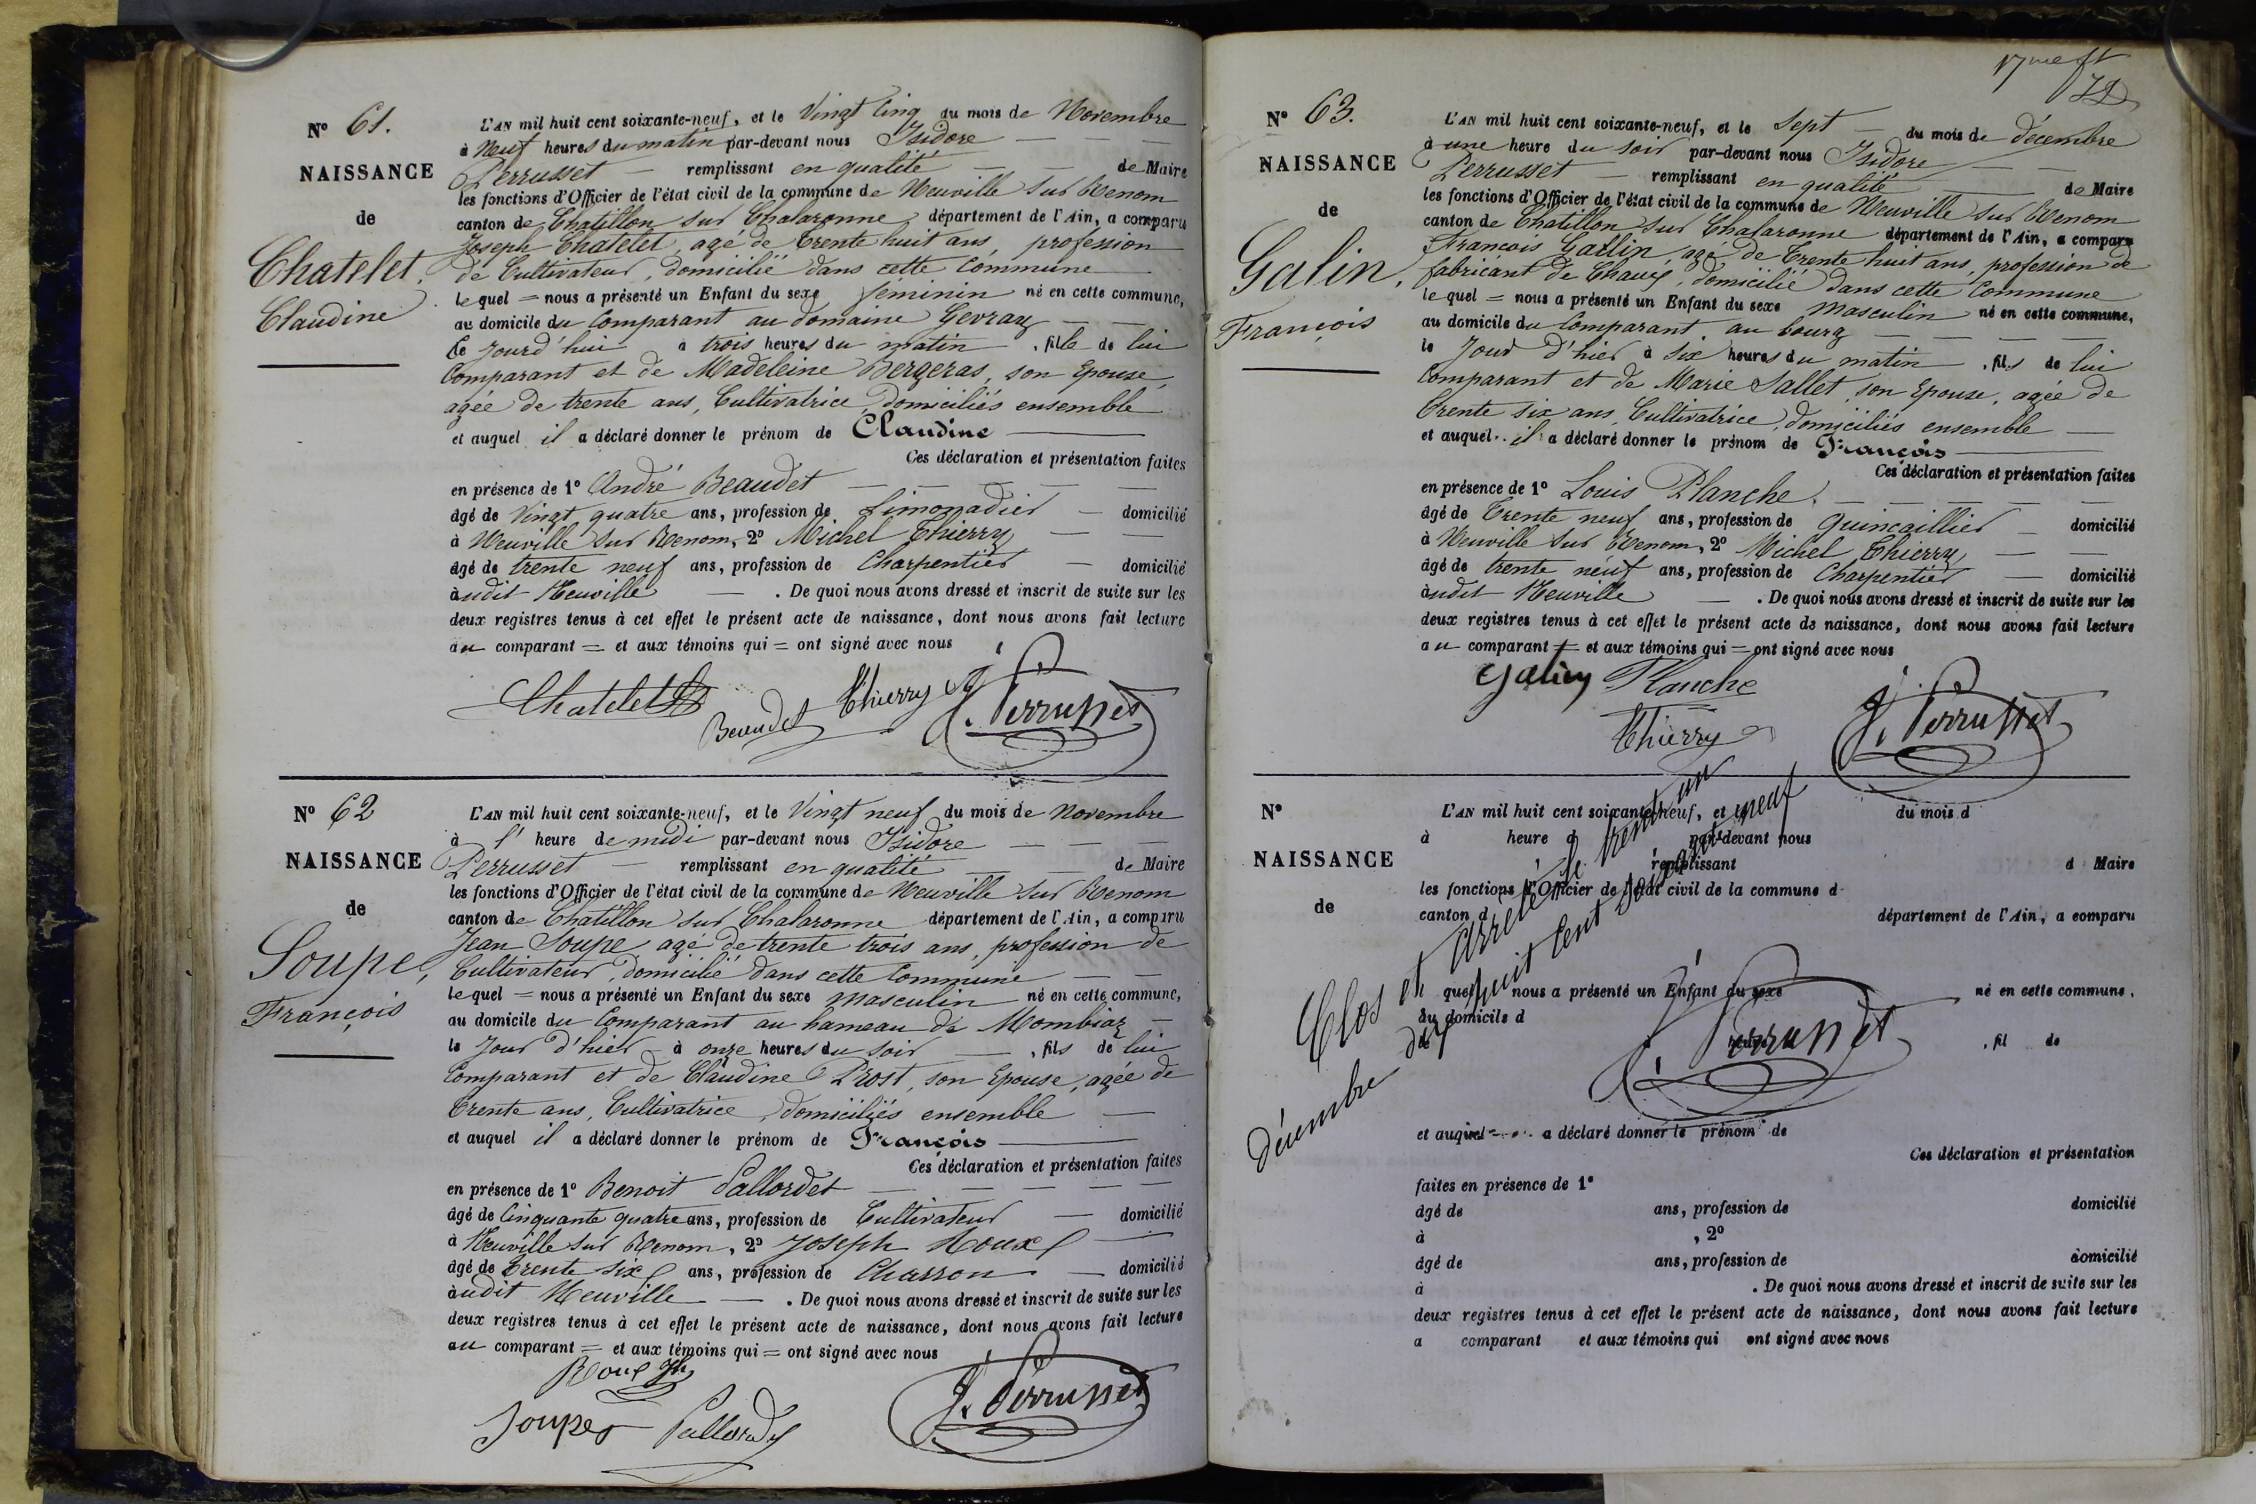 N° 61.
NAISSANCE
de
Chatelet,
Claudine
L'AN mil huit cent soixante-neuf, et le Vingt Cinq du mois de Novembre
à Neuf heures du matin par-devant nous Isidore
Perrusset remplissant en qualité de Maire
les fonctions d'Officier de l'état civil de la commune de Neuville sur Renom
canton de Chatillon sur Chalaronne département de l'Ain, a comparu
Joseph Chatelet, agé de trente huit ans, profession
de Cultivateur, domicilié dans cette Commune
lequel = nous a présenté un Enfant du sexe féminin né en cette commune,
au domicile du Comparant au domaine Gevray
le jourd'hui à trois heures du matin, fille de lui
Comparant et de Madeleine Bergeras, son Epouse,
agée de trente ans, Cultivatrice, domiciliés ensemble
et auquel il a déclaré donner le prénom de Claudine
Ces déclaration et présentation faites
en présence de 1° André Beaudet
âgé de Vingt quatre ans, profession de Limonadier domicilié
à Neuville sur Renom, 2° Michel Thierry
âgé de trente neuf ans, profession de Charpentier domicilié
àudit Neuville . De quoi nous avons dressé et inscrit de suite sur les
deux registres tenus à cet effet le présent acte de naissance, dont nous avons fait lecture
au comparant = et aux témoins qui = ont signé avec nous
Chatelet
Beaudet Thierry J. Perrusset
N° 62
NAISSANCE
de
Soupe,
François
L'AN mil huit cent soixante-neuf, et le Vingt neuf du mois de Novembre
à l' heure de midi par-devant nous Isidore
Perrusset remplissant en qualité de Maire
les fonctions d'Officier de l'état civil de la commune de Neuville sur Renom
canton de Chatillon sur Chalaronne département de l'Ain, a comparu
Jean Soupe, agé de trente trois ans, profession de
Cultivateur, domicilié dans cette Commune
lequel = nous a présenté un Enfant du sexe masculin né en cette commune,
au domicile du Comparant au hameau de Mombiaz
le Jour d'hier à onze heures du soir , fils de lui
Comparant et de Claudine Prost, son Epouse, agée de
trente ans, Cultivatrice, domiciliés ensemble
et auquel il a déclaré donner le prénom de François
Ces déclaration et présentation faites
en présence de 1° Benoit Pallordet
âgé de Cinquante quatre ans, profession de Cultivateur domicilié
à Neuville sur Renom, 2° Joseph Roux
âgé de trente six ans, profession de Charron domicilié
àudit Neuville . De quoi nous avons dressé et inscrit de suite sur les
deux registres tenus à cet effet le présent acte de naissance, dont nous avons fait lecture
au comparant = et aux témoins qui = ont signé avec nous
Roux Jh
Soupe Pallordet J. Perrusset
N° 63.
NAISSANCE
de
Galin,
François
L'AN mil huit cent soixante-neuf, et le Sept du mois de décembre
à une heure du soir par-devant nous Isidore
Perrusset remplissant en qualité de Maire
les fonctions d'Officier de l'état civil de la commune de Neuville sur Renom
canton de Chatillon sur Chalaronne département de l'Ain, a comparu
François Gallin, agé de trente huit ans, profession de
fabricant de Chaux, domicilié dans cette Commune
lequel = nous a présenté un Enfant du sexe masculin né en cette commune,
au domicile du Comparant au bourg
le Jour d'hier à six heures du matin , fils de lui
Comparant et de Marie Sallet, son Epouse, agée de
trente six ans, Cultivatrice, domiciliés ensemble
et auquel il a déclaré donner le prénom de François
Ces déclaration et présentation faites
en présence de 1° Louis Planche
âgé de trente neuf ans, profession de quincaillier domicilié
à Neuville sur Renom, 2° Michel Thierry
âgé de trente neuf ans, profession de Charpentier domicilié
àudit Neuville . De quoi nous avons dressé et inscrit de suite sur les
deux registres tenus à cet effet le présent acte de naissance, dont nous avons fait lecture
au comparant = et aux témoins qui = ont signé avec nous
Galin Planche
Thierry J. Perrusset
N°
NAISSANCE
de
L'AN mil huit cent soixante-neuf, et le du mois d
à heure d par-devant nous
remplissant d Maire
les fonctions d'Officier de l'état civil de la commune d
canton d département de l'Ain, a comparu
quel nous a présenté un Enfant du sexe né en cette commune,
au domicile d
le à heure , fil de
et auquel a déclaré donner le prénom de
Ces déclaration et présentation
faites en présence de 1°
âgé de ans, profession de domicilié
à , 2°
âgé de ans, profession de domicilié
à . De quoi nous avons dressé et inscrit de suite sur les
deux registres tenus à cet effet le présent acte de naissance, dont nous avons fait lecture
a comparant et aux témoins qui ont signé avec nous
Clos et arreté le trent un
décembre dix huit cent soixante neuf
J. Perrusset